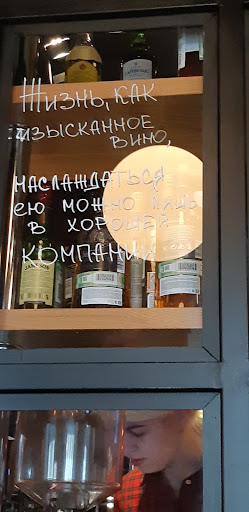 Жизнь, как
изысканное
вино,
наслаждаться
ею можно лишь
в хорошей
компании
JAMESON